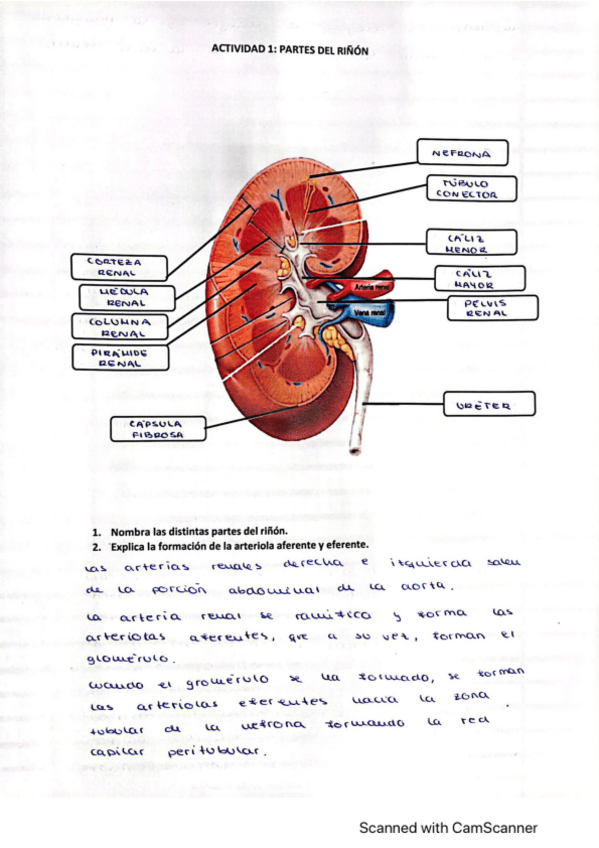 ACTIVIDAD 1: PARTES DEL RIÑÓN
NEFRONA
TÚBULO
CONECTOR
CÁLIZ
MENOR
CÁLIZ
MAYOR
PELVIS
RENAL
URÉTER
CORTEZA
RENAL
MÉDULA
RENAL
COLUMNA
RENAL
PIRÁMIDE
RENAL
CÁPSULA
FIBROSA
Arteria renal
Vena renal
1. Nombra las distintas partes del riñón.
2. Explica la formación de la arteriola aferente y eferente.
Las arterias renales derecha e izquierda salen
de la porción abdominal de la aorta.
La arteria renal se ramifica y forma las
arteriolas aferentes, que a su vez, forman el
glomérulo.
Cuando el glomérulo se ha formado, se forman
las arteriolas eferentes hacia la zona
tubular de la nefrona formando la red
capilar peritubular.
Scanned with CamScanner